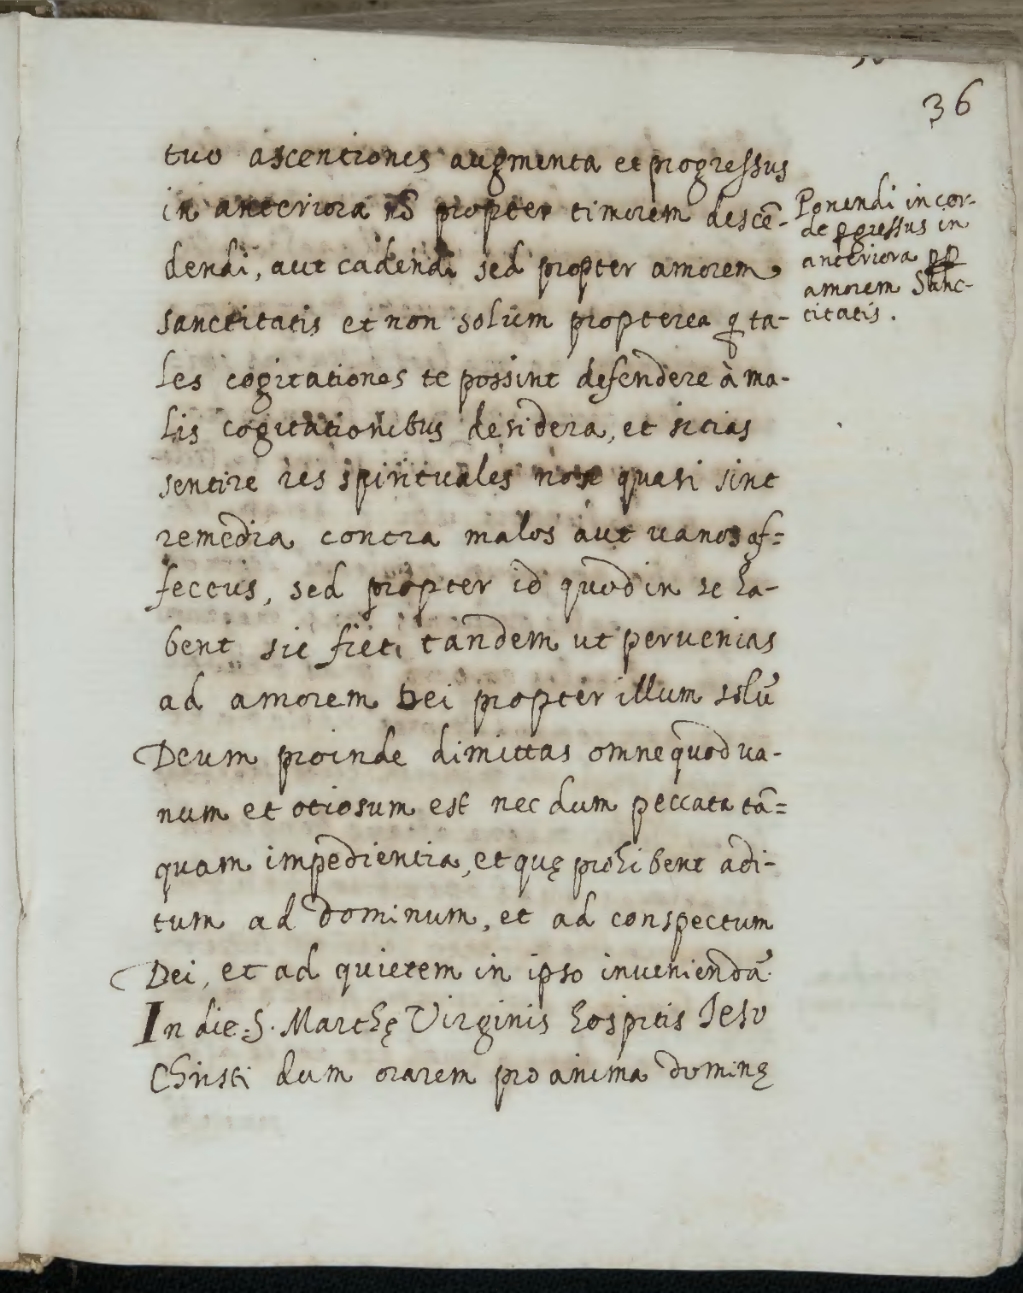 36
tuo ascentiones augmenta et progressus
in anteriora nō propter timorem descē-
dendi, aut cadendi sed propter amorem
sanctitatis et non solum propterea q ta-
les cogitationes te possint defendere à ma-
lis cogitationibus desidera, et sitias
sentire res spirituales non quasi sint
remedia contra malos aut uanos af=
fectus, sed propter id quod in se ha-
bent sic fiet tandem ut peruenias
ad amorem Dei propter illum solū
Deum proinde dimittas omne quod ua-
num et otiosum est nec dum peccata tā=
quam impedientia, et quę prohibent adi-
tum ad dominum, et ad conspectum
Dei, et ad quietem in ipso inueniendā
In die S. Marthę Virginis hospitis Iesv
Christi dum orarem pro anima dominę
Ponendi in cor-
de ꝓgressus in
anteriora pp
amorem Sanc-
titatis.